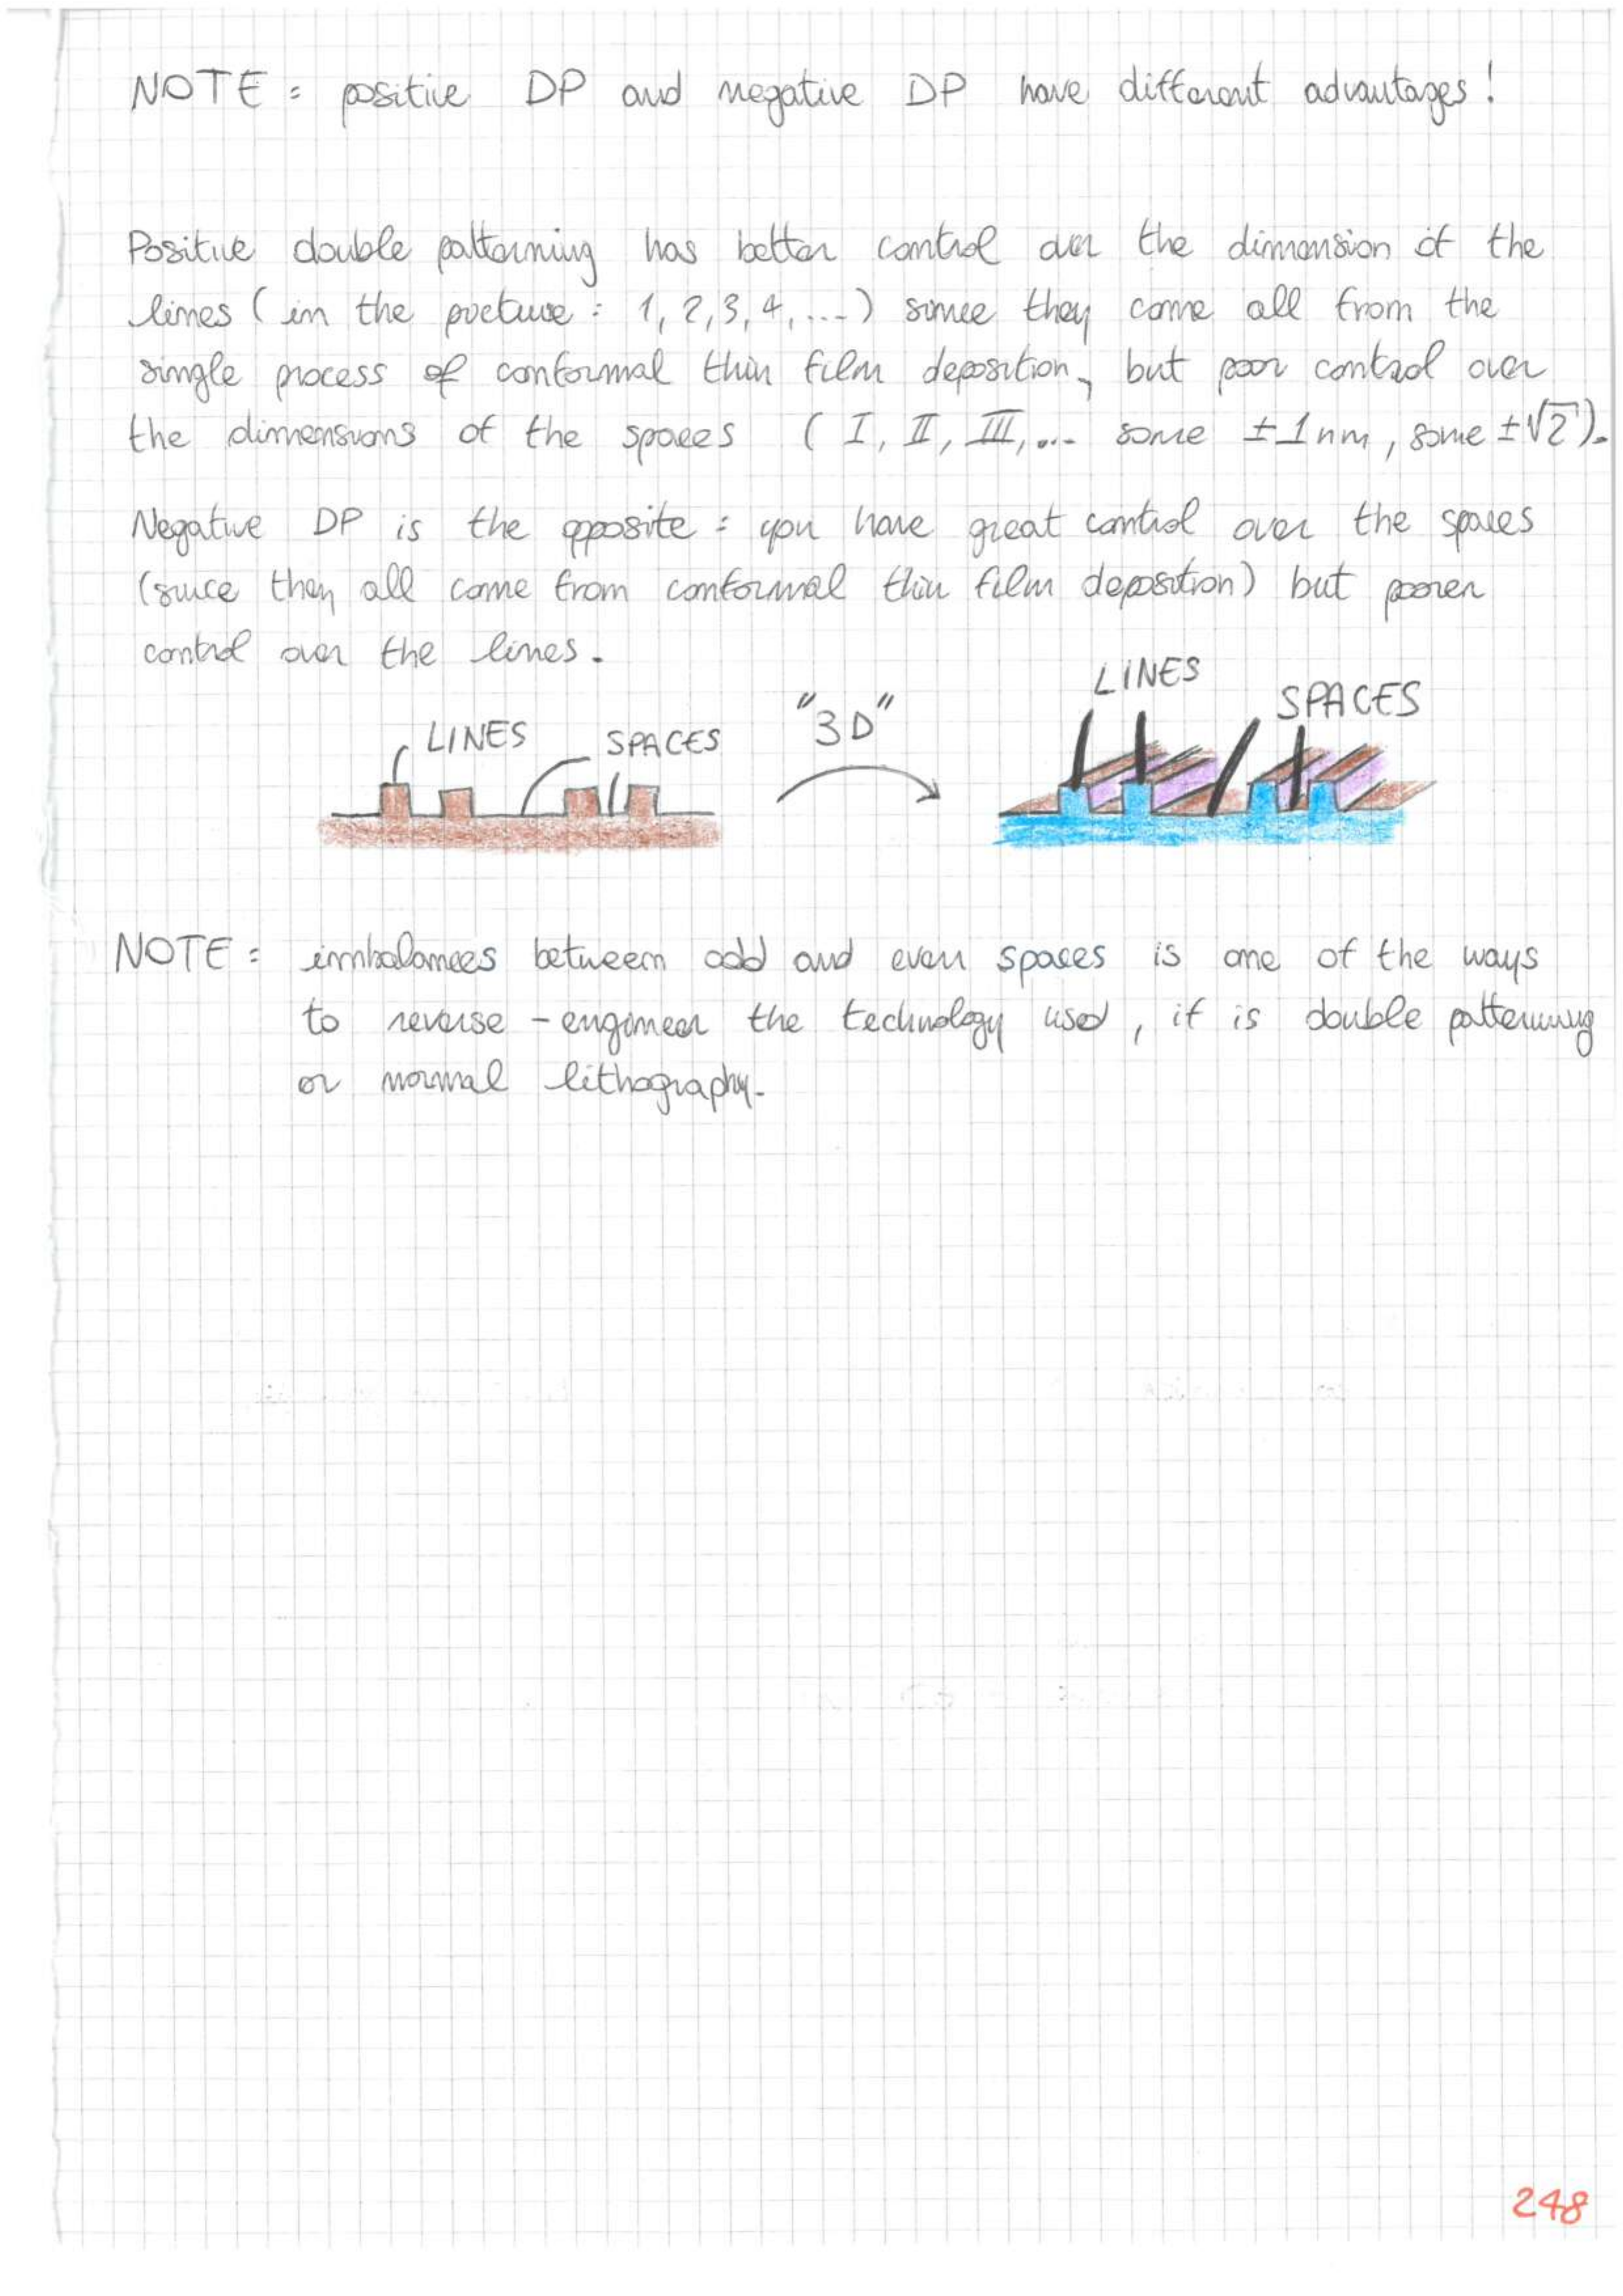 NOTE : positive DP and negative DP have different advantages!
Positive double patterning has better control over the dimension of the
lines (in the picture : 1, 2, 3, 4, ...) since they come all from the
single process of conformal thin film deposition, but poor control over
the dimensions of the spaces ( I, II, III, ... some ±1nm, some ±√2).
Negative DP is the opposite : you have great control over the spaces
(since they all come from conformal thin film deposition) but poorer
control over the lines.
LINES SPACES "3D" LINES SPACES
NOTE : imbalances between odd and even spaces is one of the ways
to reverse-engineer the technology used, if is double patterning
or normal lithography.
248